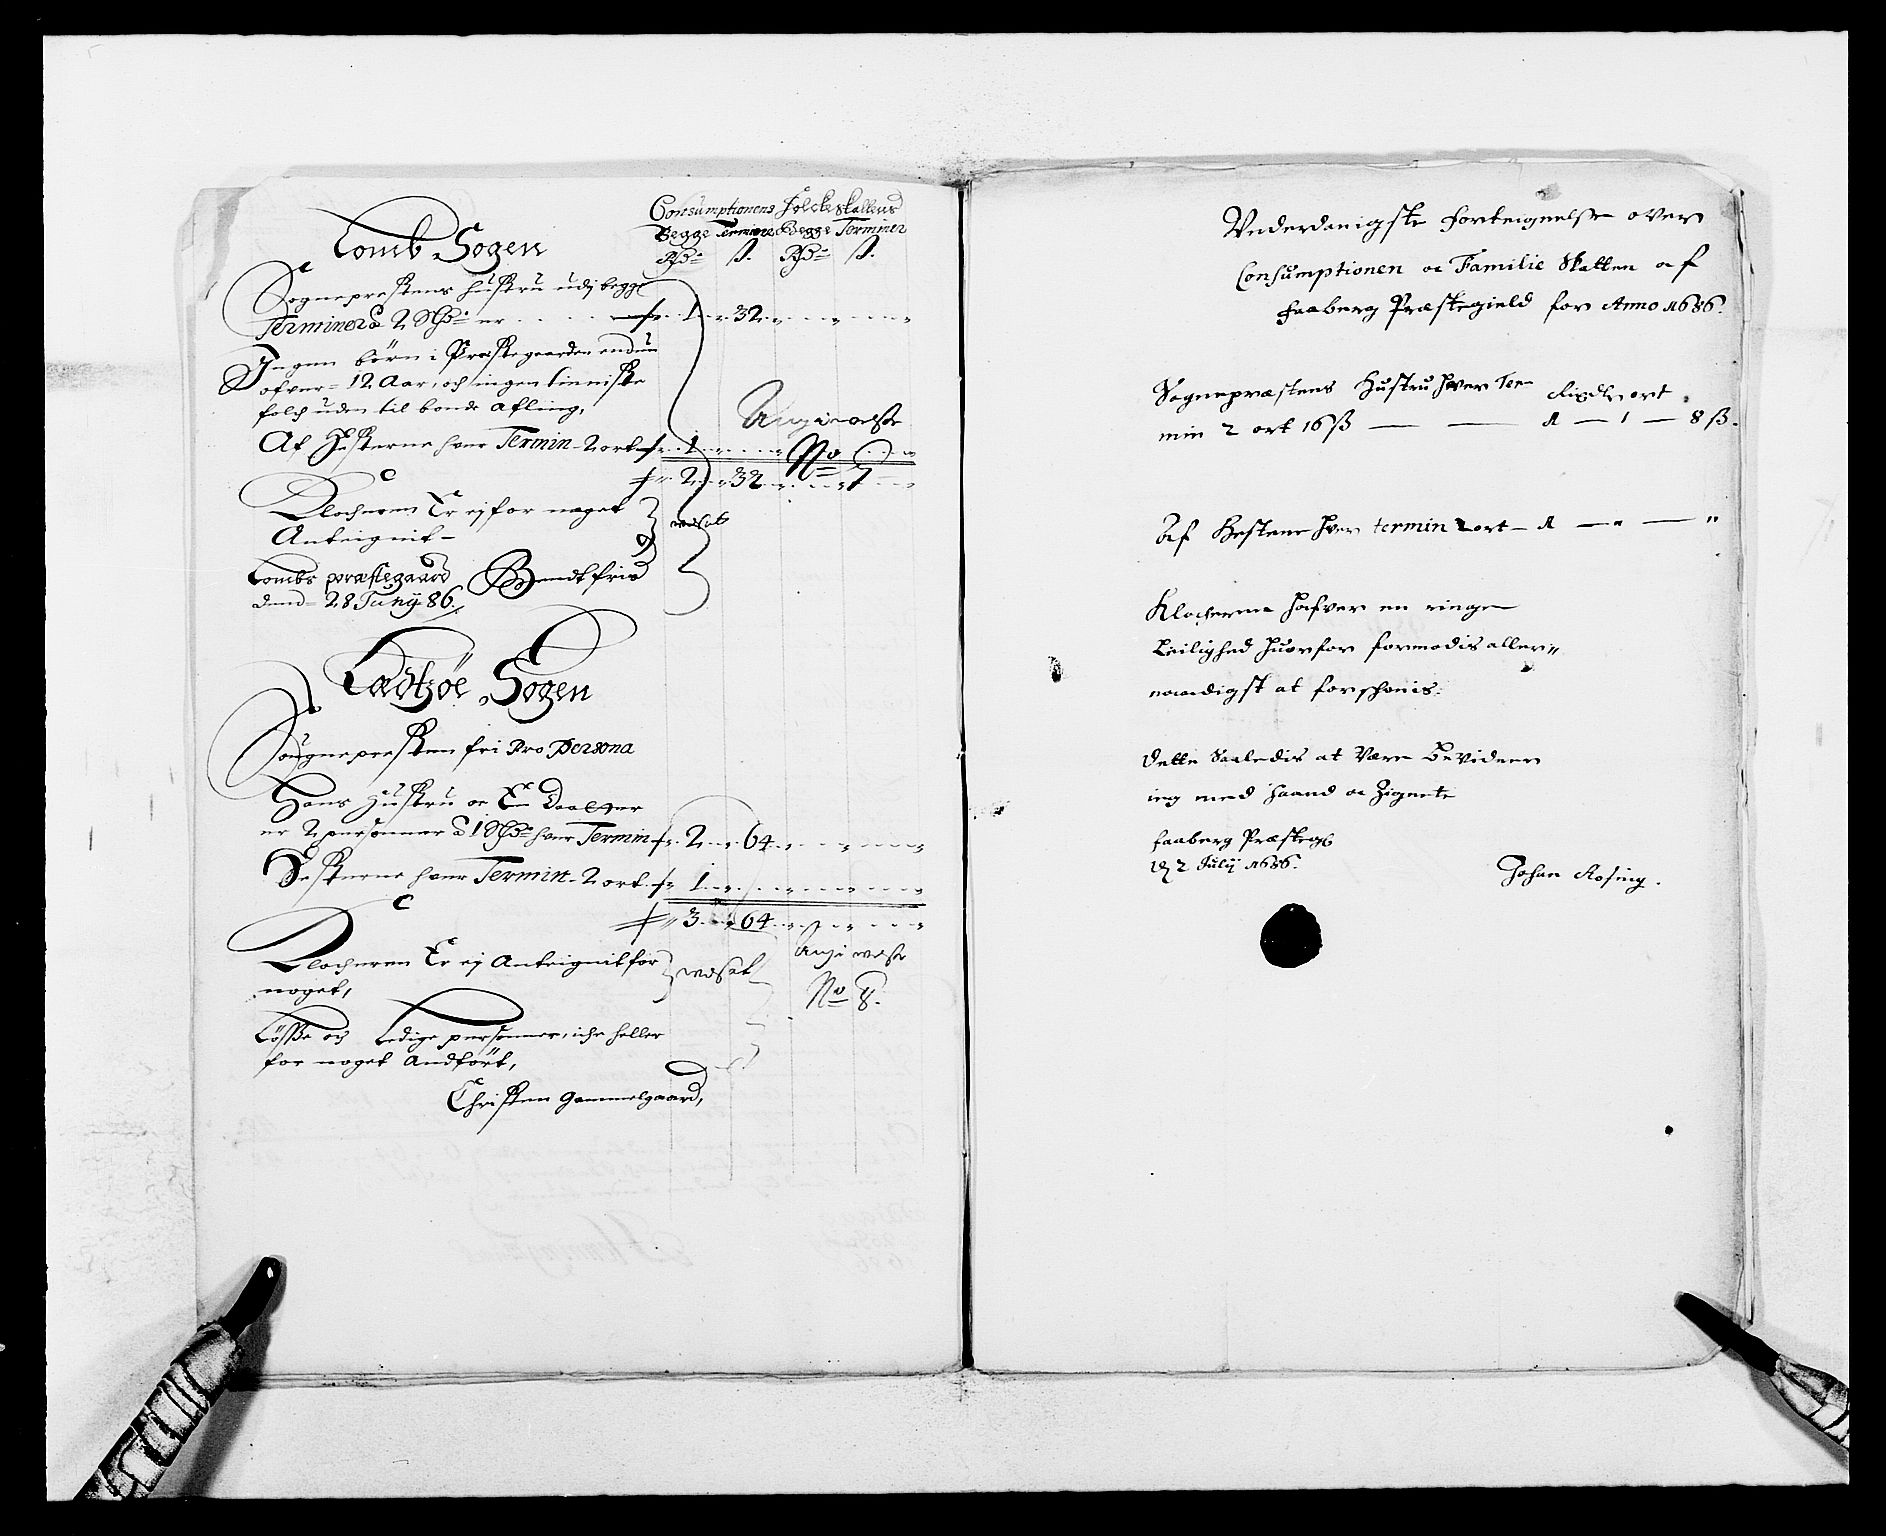 Consumptionens Folckeskattens
Begge Terminer Begge Terminer
Rdr. ß. Rdr. ß.
Lomb Sogen
Sogneprestens hustru udj begge
Terminer à 2 Rdr. er 1 32
Ingen börn i Præstegaarden endnu
ofver 12 Aar, och ingen tienniste
folch uden til bonde afling,
Af Hesterne hver Termin 2 ort 1
2 32
Angivelse
No 7
Klocheren Er ej for noget
Anteignit
Lombs præstegaard
dend 28 Junij 86.
Læssöe Sogen
Sougnepresten fri Pro Persona
Hans Hustru oc En Daatter
er 2 personner à 1 Rdr. hver Termin 2 64
Hesterne hver Termin 2 ort 1
3 64
Klocheren Er ej Anteignit for
noget,
Angivelse
No 8.
Lösse og Ledige personner, iche heller
for noget Andfört,
Christen Gammelgaard,
Vnderdanigste forteignelse over
Consumptionen oc Familie Skatten af
Faaberg Præstegield for Anno 1686.
Sognepræstens Hustru hver Ter-
min 2 ort 16 ß — — 1 — 1 — 8 ß.
Rixdlr ort
Af Hestene hver termin 2 ort — 1 — " — "
Klocherne hafver en ringe
Leilighed huorfor formodis aller-
naadigst at forschonis.
Dette Saaledis at Være Bevidner
ieg med Haand oc Zignete
Faaberg Præsteg:
d. 2 Julij 1686.
Johan Rosing.